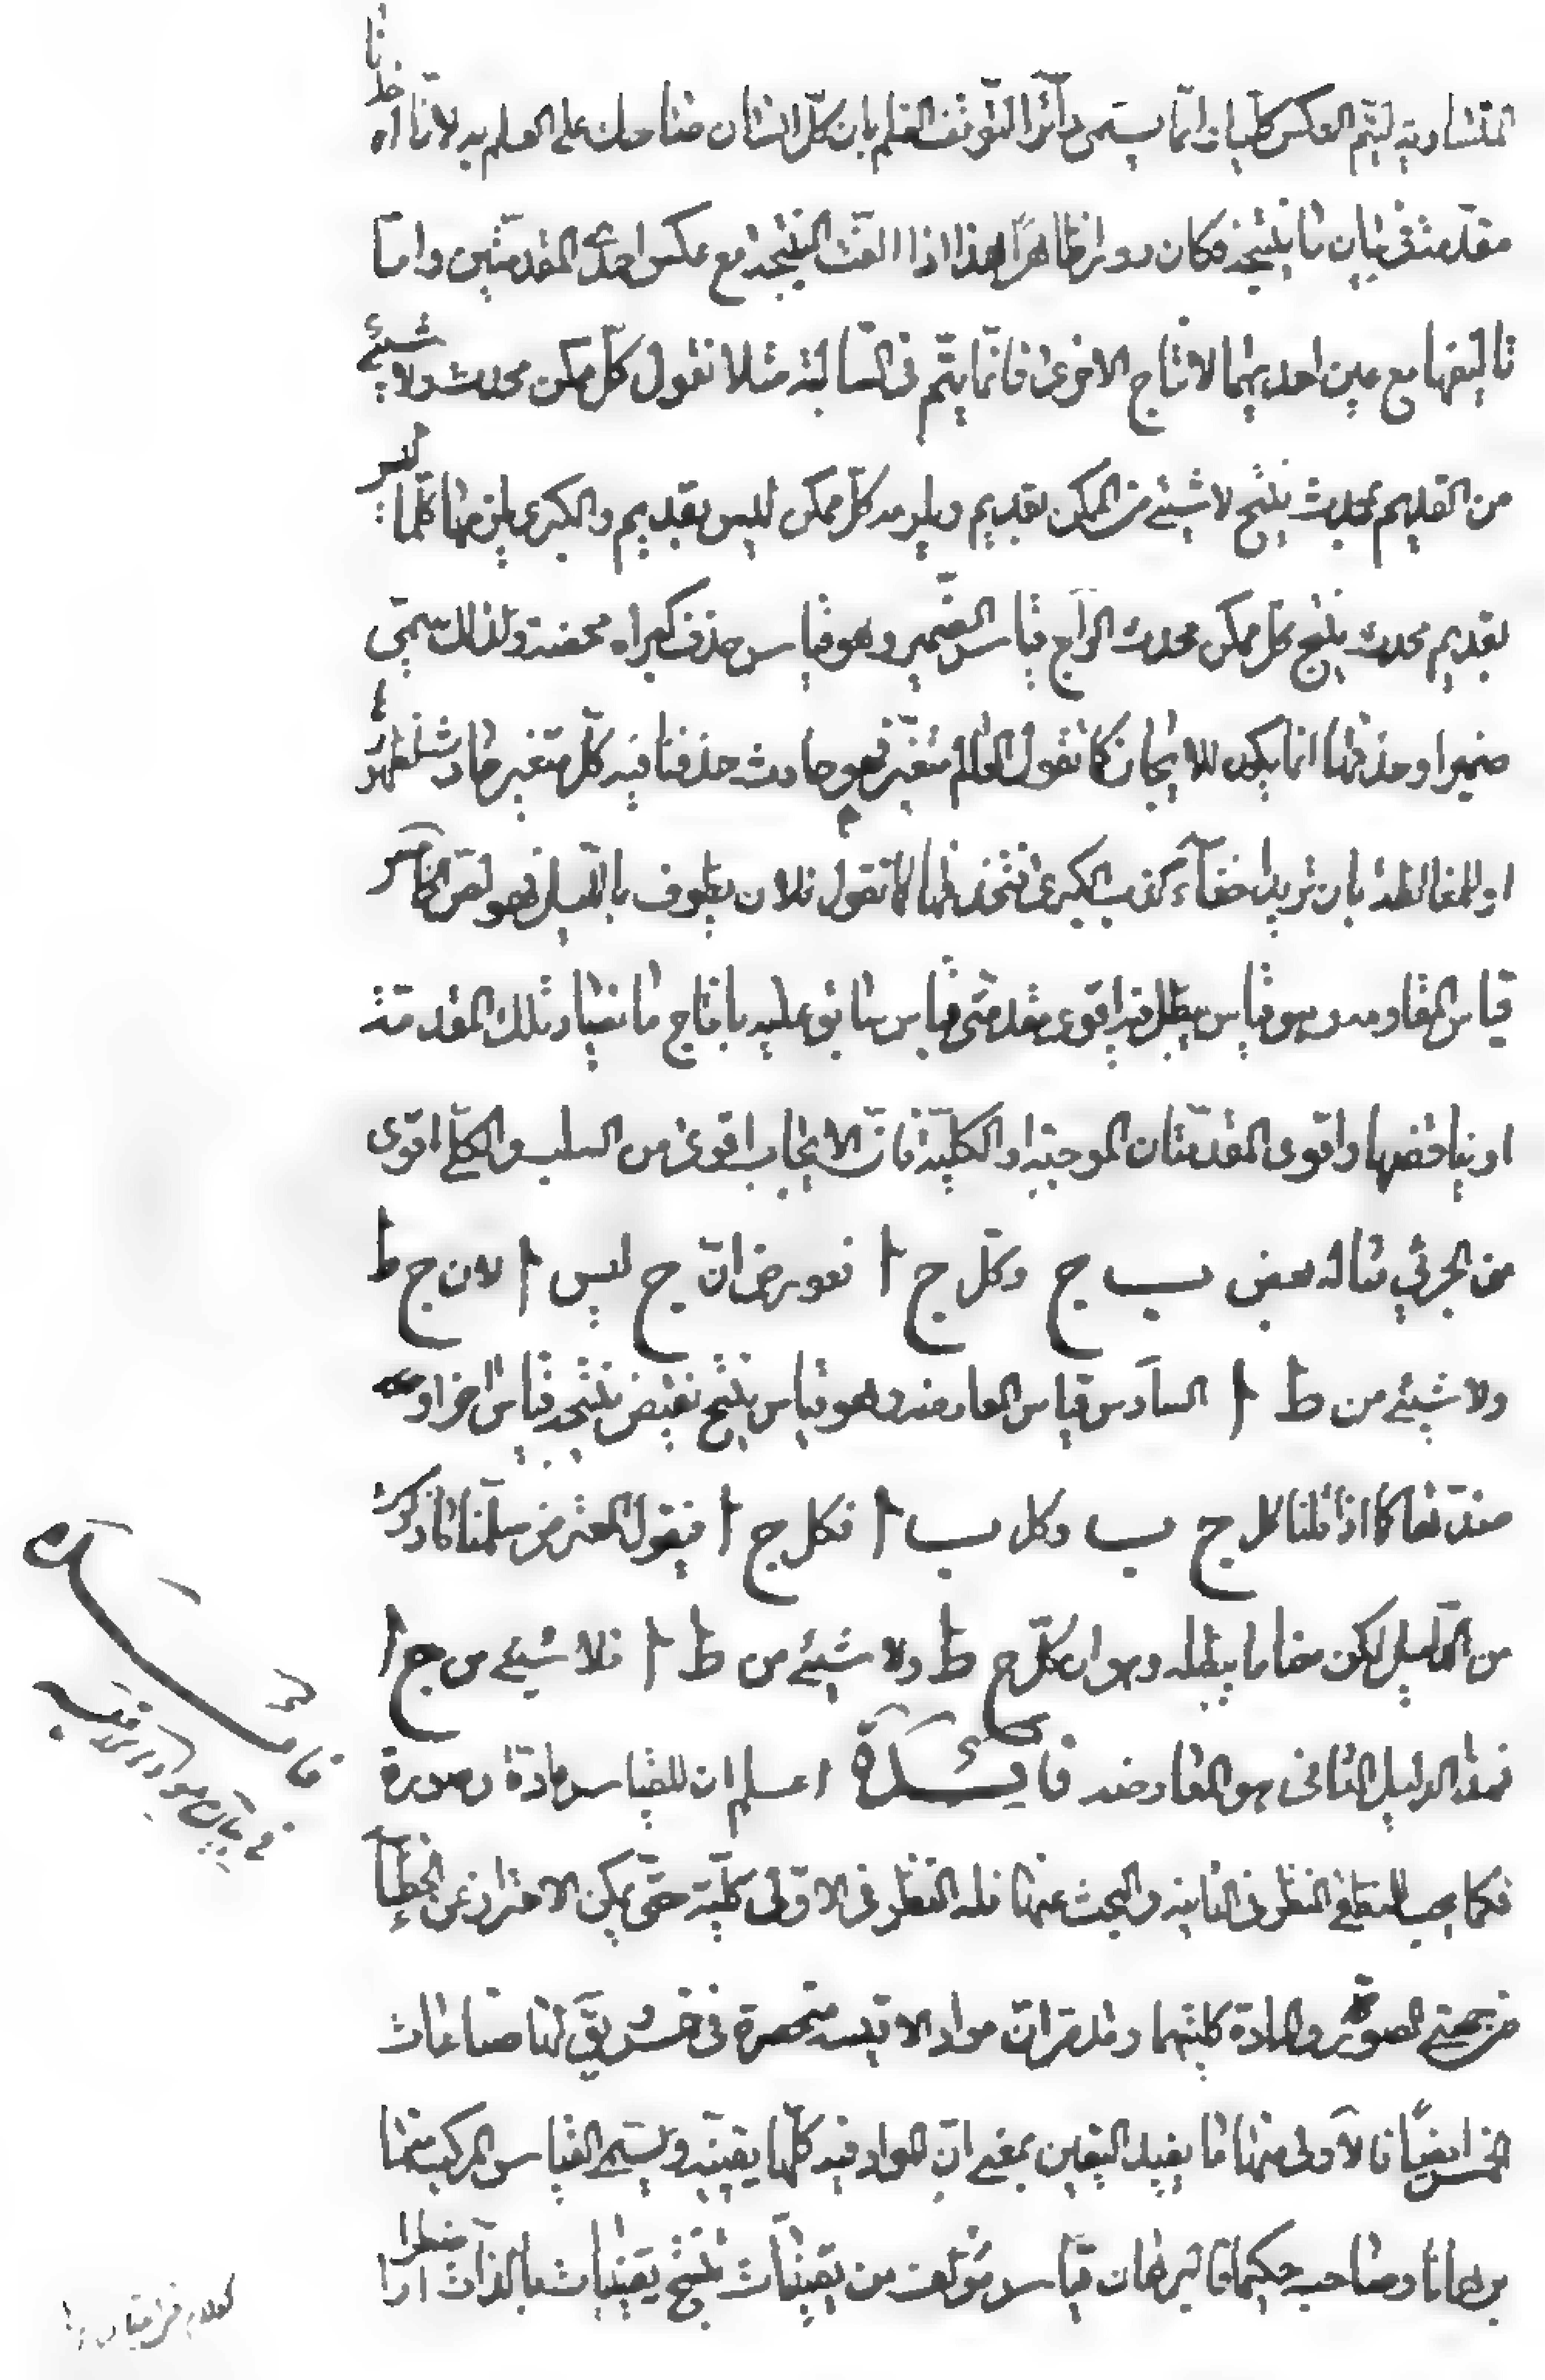 المتساوية ليتم العكس كليا وانما يسمى دائرا لتوقف العلم بان كل انسان ضاحك على العلم به لانا اخذناه
مقدمة في بيان ما ينتجه فكان دورا ظاهرا هذا اذا الفت النتيجة مع عكس احدى المقدمتين واما
تاليفها مع عين احديهما لانتاج الاخرى فانما يتم في السالبة مثلا نقول كل ممكن محدث ولا شيئ
من القديم بمحدث ينتج لا شيئ من الممكن بقديم ويلزمه كل ممكن ليس بقديم والكبرى يلزمها كلما ليس
بقديم محدث ينتج كل ممكن محدث الرابع قياس الضمير وهو قياس حذف كبراه محضة ولذلك سمي
ضميرا وحذفها انما يكون للايجاز كما نقول العالم متغير فهو حادث حذفنا فيه كل متغير حادث لظهوره
او للمغالطة بان تريد اخفاء كذب الكبرى فتحذفها كما تقول فلان يطوف بالليل فهو لص الخامس
قياس المقاومة وهو قياس يبطل فيه اقوى مقدمتي قياس سابق عليه بانتاج ما يضاد تلك المقدمة
او يناقضها واقوى المقدمتان الموجبة او الكلية فان الايجاب اقوى من السلب والكلي اقوى
من الجزئي مثاله بعض ب ج وكل ج ا فعورض ان ج ليس ا لان ج ط
ولا شيئ من ط ا السادس قياس المعارضة وهو قياس ينتج نقيض نتيجة قياس اخر او
ضدها كما اذا قلنا كل ج ب وكل ب ا فكل ج ا فيقول المعترض سلمنا ما ذكرت
من الدليل لكن معنا ما يبطله وهو ان كل ج ط ولا شيئ من ط ا فلا شيئ من ج ا
فهذا الدليل الثاني هو المعارضة فائدة اعلم ان للقياس مادة وصورة
فكما يجب للمنطقي النظر في الثانية والبحث عنها فله النظر في الاولى كلية حتى يمكن الاحتراز عن الخطأ
من جهتي الصورة والمادة كليتهما وقد قرر ان مواد الاقيسة منحصرة في خمس يقال لها صناعات
الخمس ايضا فالاولى منها ما يفيد اليقين بمعنى ان المواد فيه كلها يقينية ويسمى القياس المركب منها
برهانا وصاحبه حكيما فالبرهان قياس مؤلف من يقينيات ينتج يقينيات بالذات اضطرارا
فائدة
في بيان مواد الاقيسة